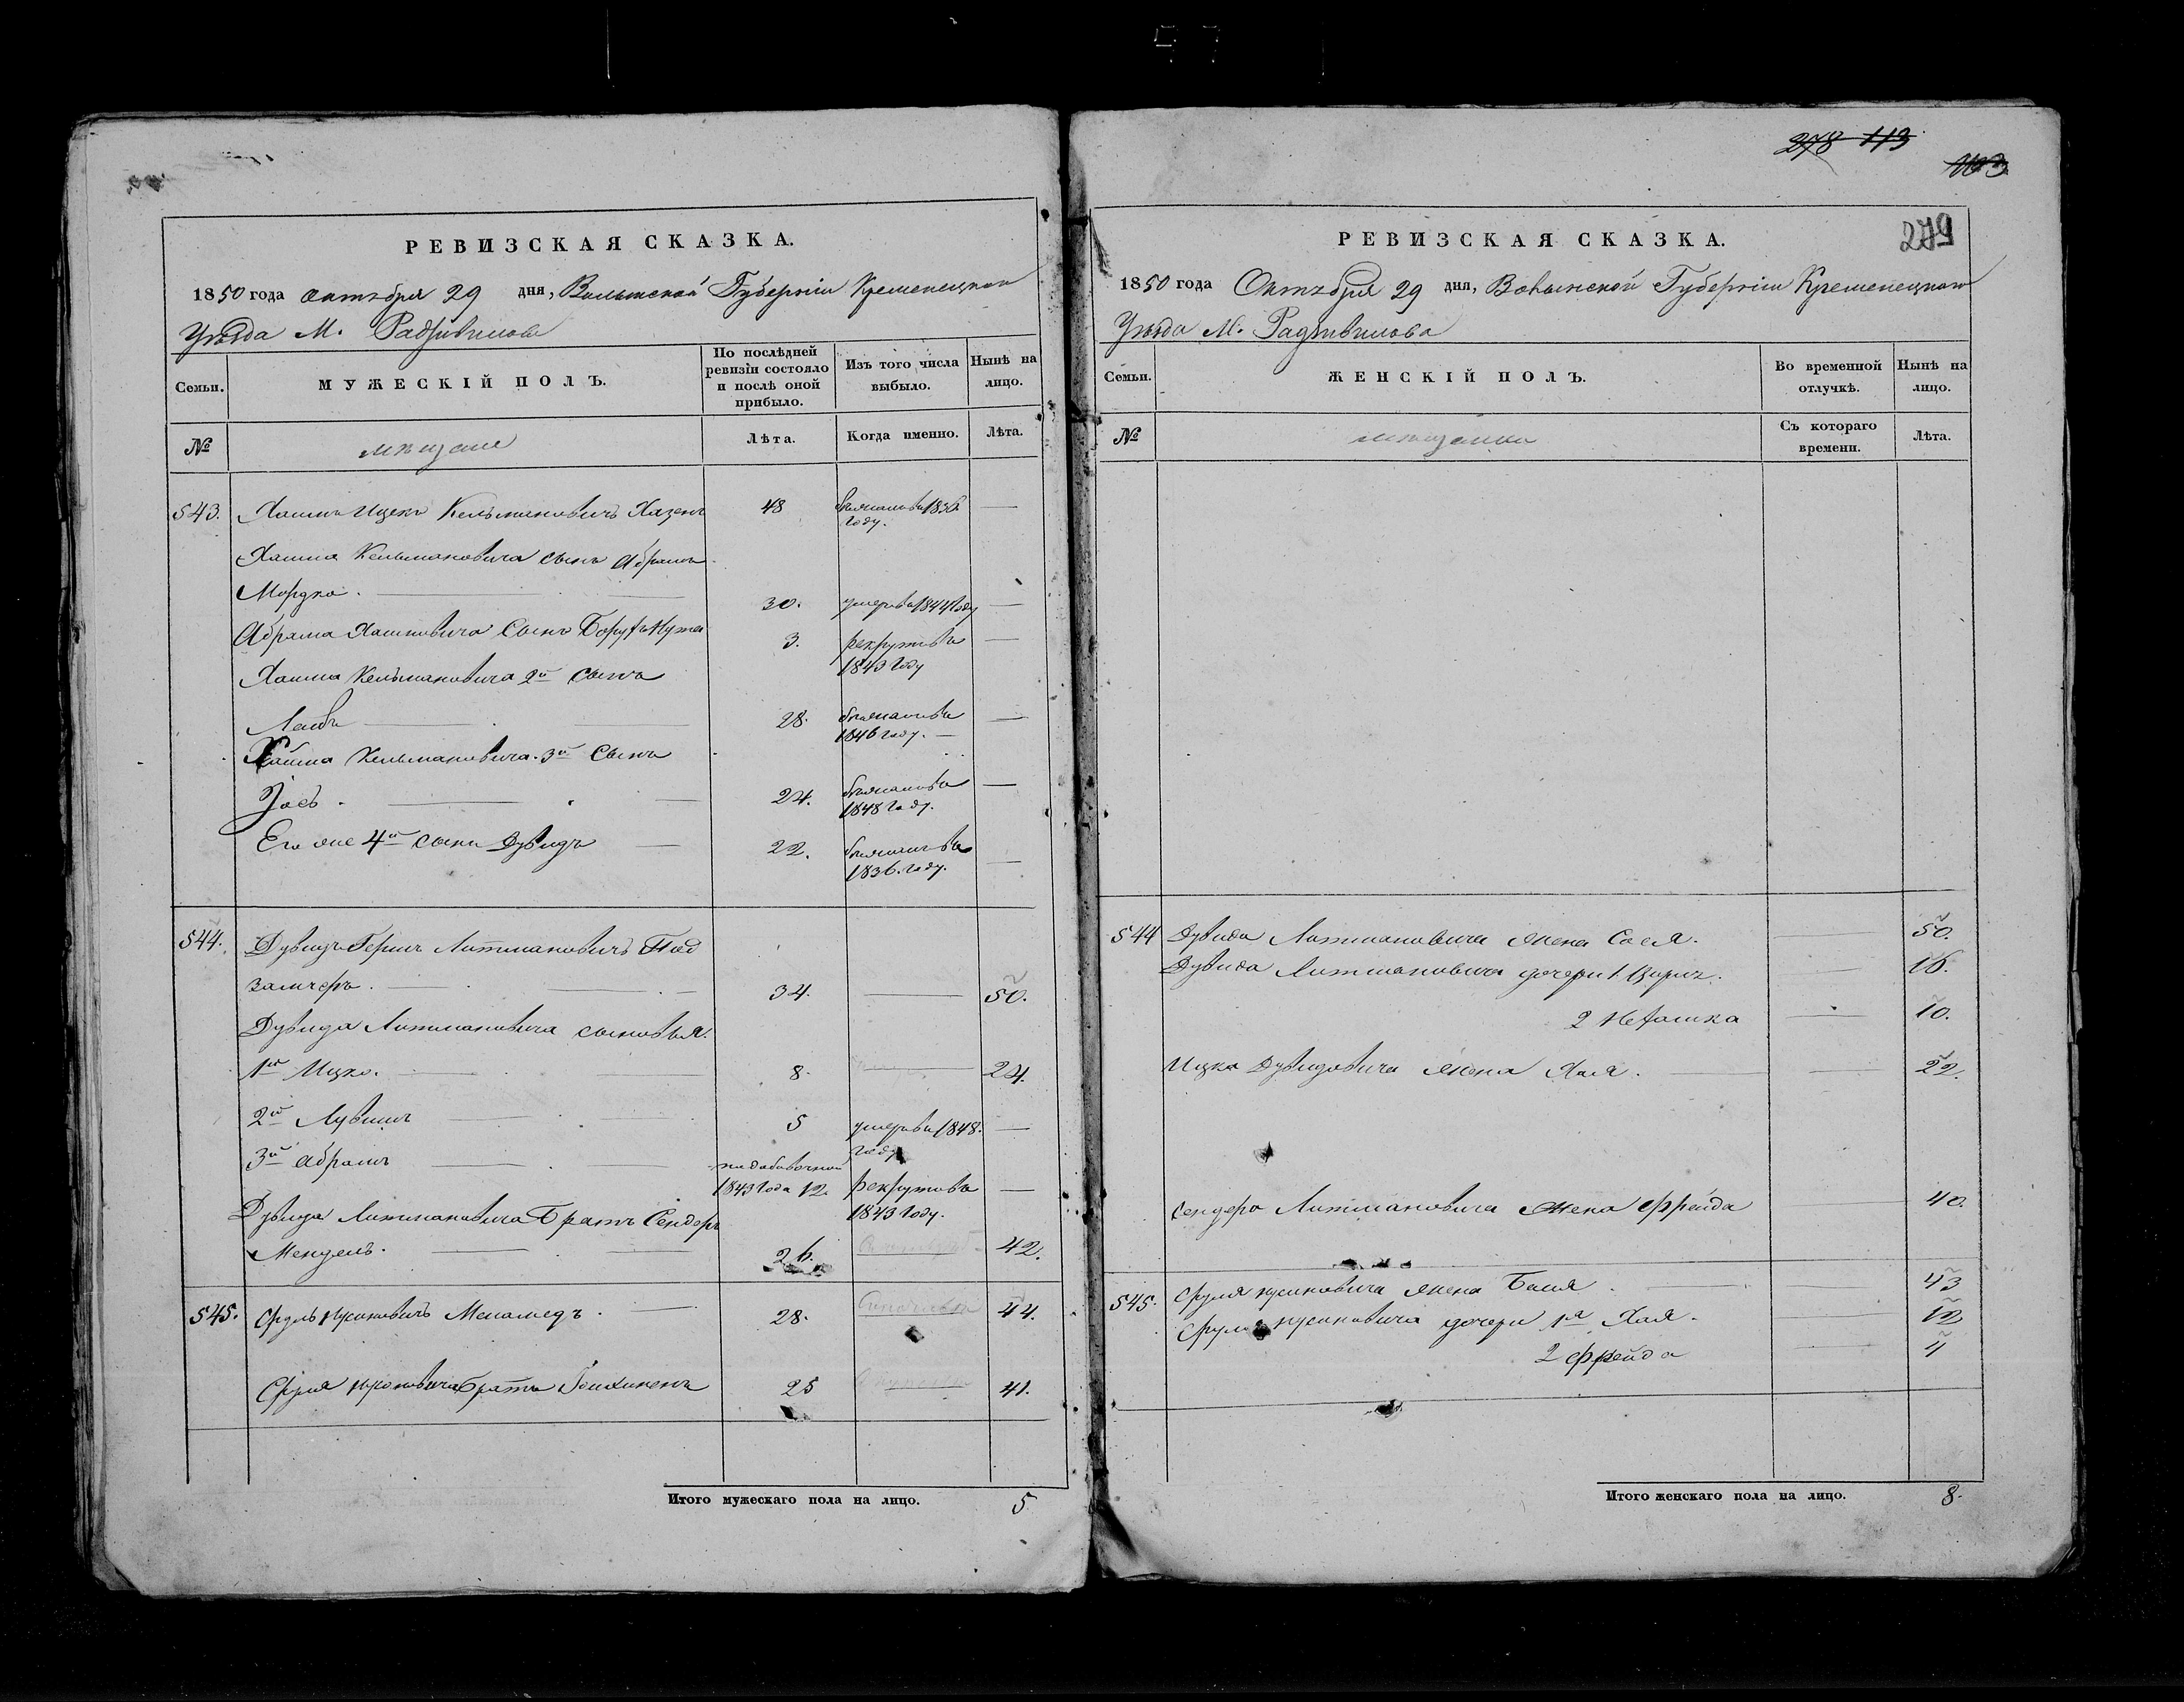 278 113
103
279
РЕВИЗСКАЯ СКАЗКА.
1850 года Октября 29 дня, Волынской Губерніи Кременецкаго
Уѣзда М. Радзивилова
Семьи.
МУЖЕСКІЙ ПОЛЪ.
По послѣдней
ревизіи состояло
и послѣ оной
прибыло.
Изъ того числа
выбыло.
Нынѣ на
лицо.
№
мѣщане
Лѣта.
Когда именно.
Лѣта.
543. Хаимъ Ицко Кельмановичъ Хазенъ 48 1836 —
году.
Хаима Кельмановича сынъ Абрамъ
Мордко. 30. умеръ въ 1844 году —
Абрама Хаимовича сынъ Борухъ 3. рекрутъ въ —
1843 году
Хаима Кельмановича 2й сынъ
Лейбъ 28. —
1846 году. —
Хаима Кельмановича 3й сынъ
Іосъ. 24. —
1848 году.
Его же 4й сынъ Дувидъ — 22. —
1836 году.
544. Дувидъ Гершъ Литмановичъ Под
замчеръ. 34. — 50.
Дувида Литмановича сыновья.
1й Ицко. 8. — 24.
2й Лувишъ 5 умеръ въ 1848. —
году
3й Абрамъ по добавочной
1843 года 12. рекрутъ въ —
1843 году.
Дувида Литмановича братъ Сендеръ
Мендель. 26. 42.
545. Сруль Нусиновичъ Меламедъ. — 28. 44.
Сруля Нусиновича братъ 25 41.
Итого мужескаго пола на лицо. 5
РЕВИЗСКАЯ СКАЗКА.
1850 года Октября 29 дня, Волынской Губерніи Кременецкаго
Уѣзда М. Радзивилова
Семьи.
ЖЕНСКІЙ ПОЛЪ.
Во временной
отлучкѣ.
Нынѣ на
лицо.
№
мѣщанки
Съ котораго
времени.
Лѣта.
544 Дувида Литмановича жена Сося. — 50.
Дувида Литмановича дочери 1. — 16.
2 Нехамка — 10.
Ицка Дувидовича жена Хая. — 22.
Сендера Литмановича жена Фрейда — 40.
545. Сруля Нусиновича жена Бася. — 43
Сруля Нусиновича дочери 1я Хая. — 12
2 Фрейда — 4
Итого женскаго пола на лицо. 8.